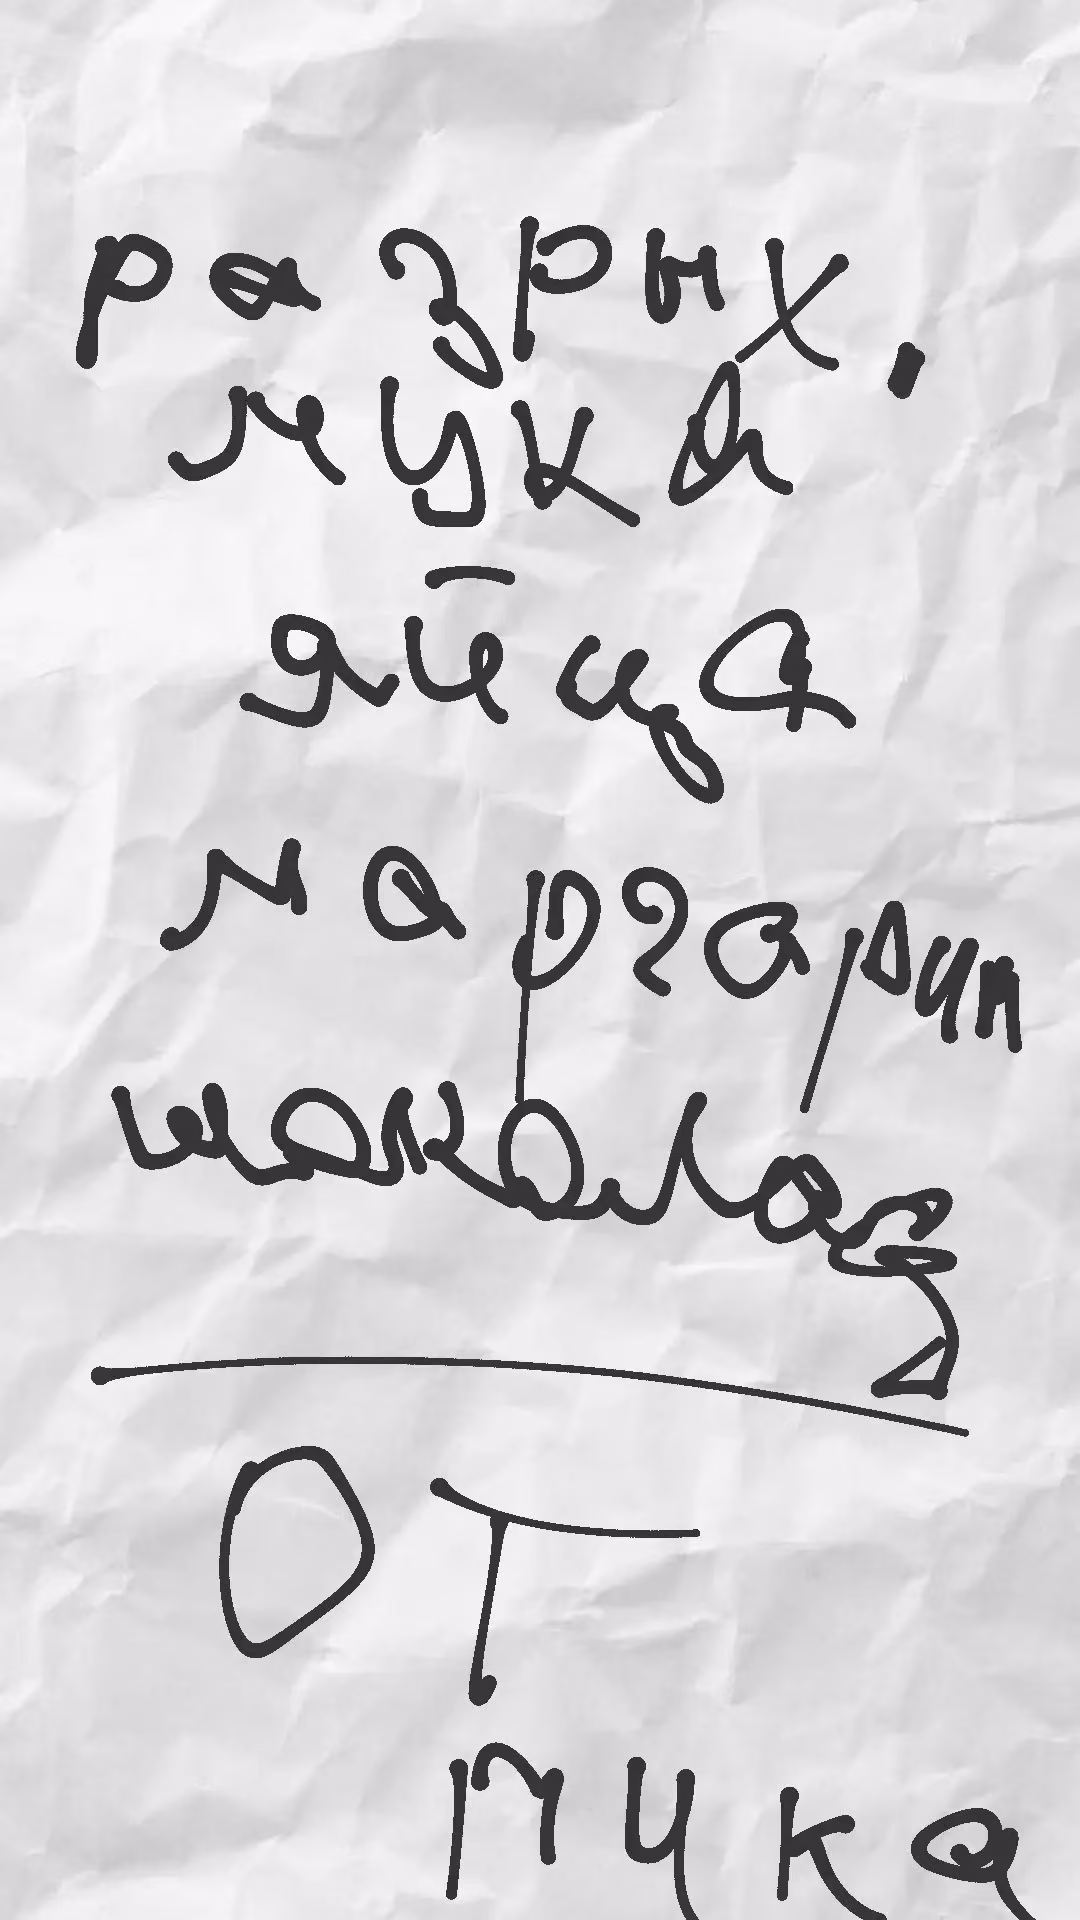 разрых.
мука
яйца
маргарин
шоколад
ОТ
мука